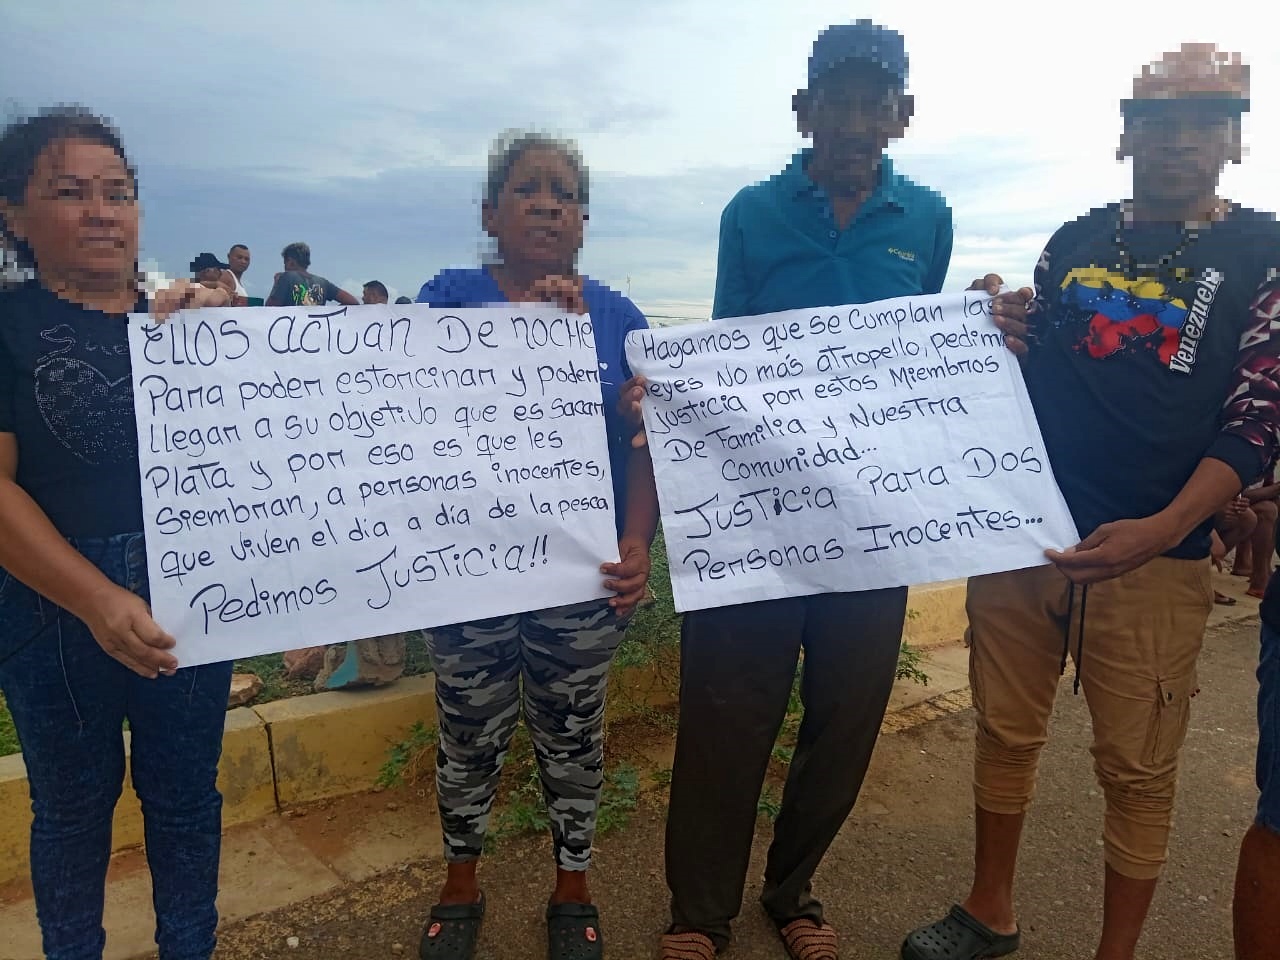 ELLOS ACTUAN DE NOCHE
Para poder estorcinar y poder
LLegar a su objetivo que es Sacar
PLATA y por eso es que les
Siembran, a personas inocentes,
que viven el día a día de la pesca
Pedimos Justicia!!
Hagamos que se Cumplan las
leyes No más atropello, pedimos
justicia por estos Miembros
De Familia y Nuestra
Comunidad...
Justicia Para Dos
Personas Inocentes...
Columbia
Venezuela